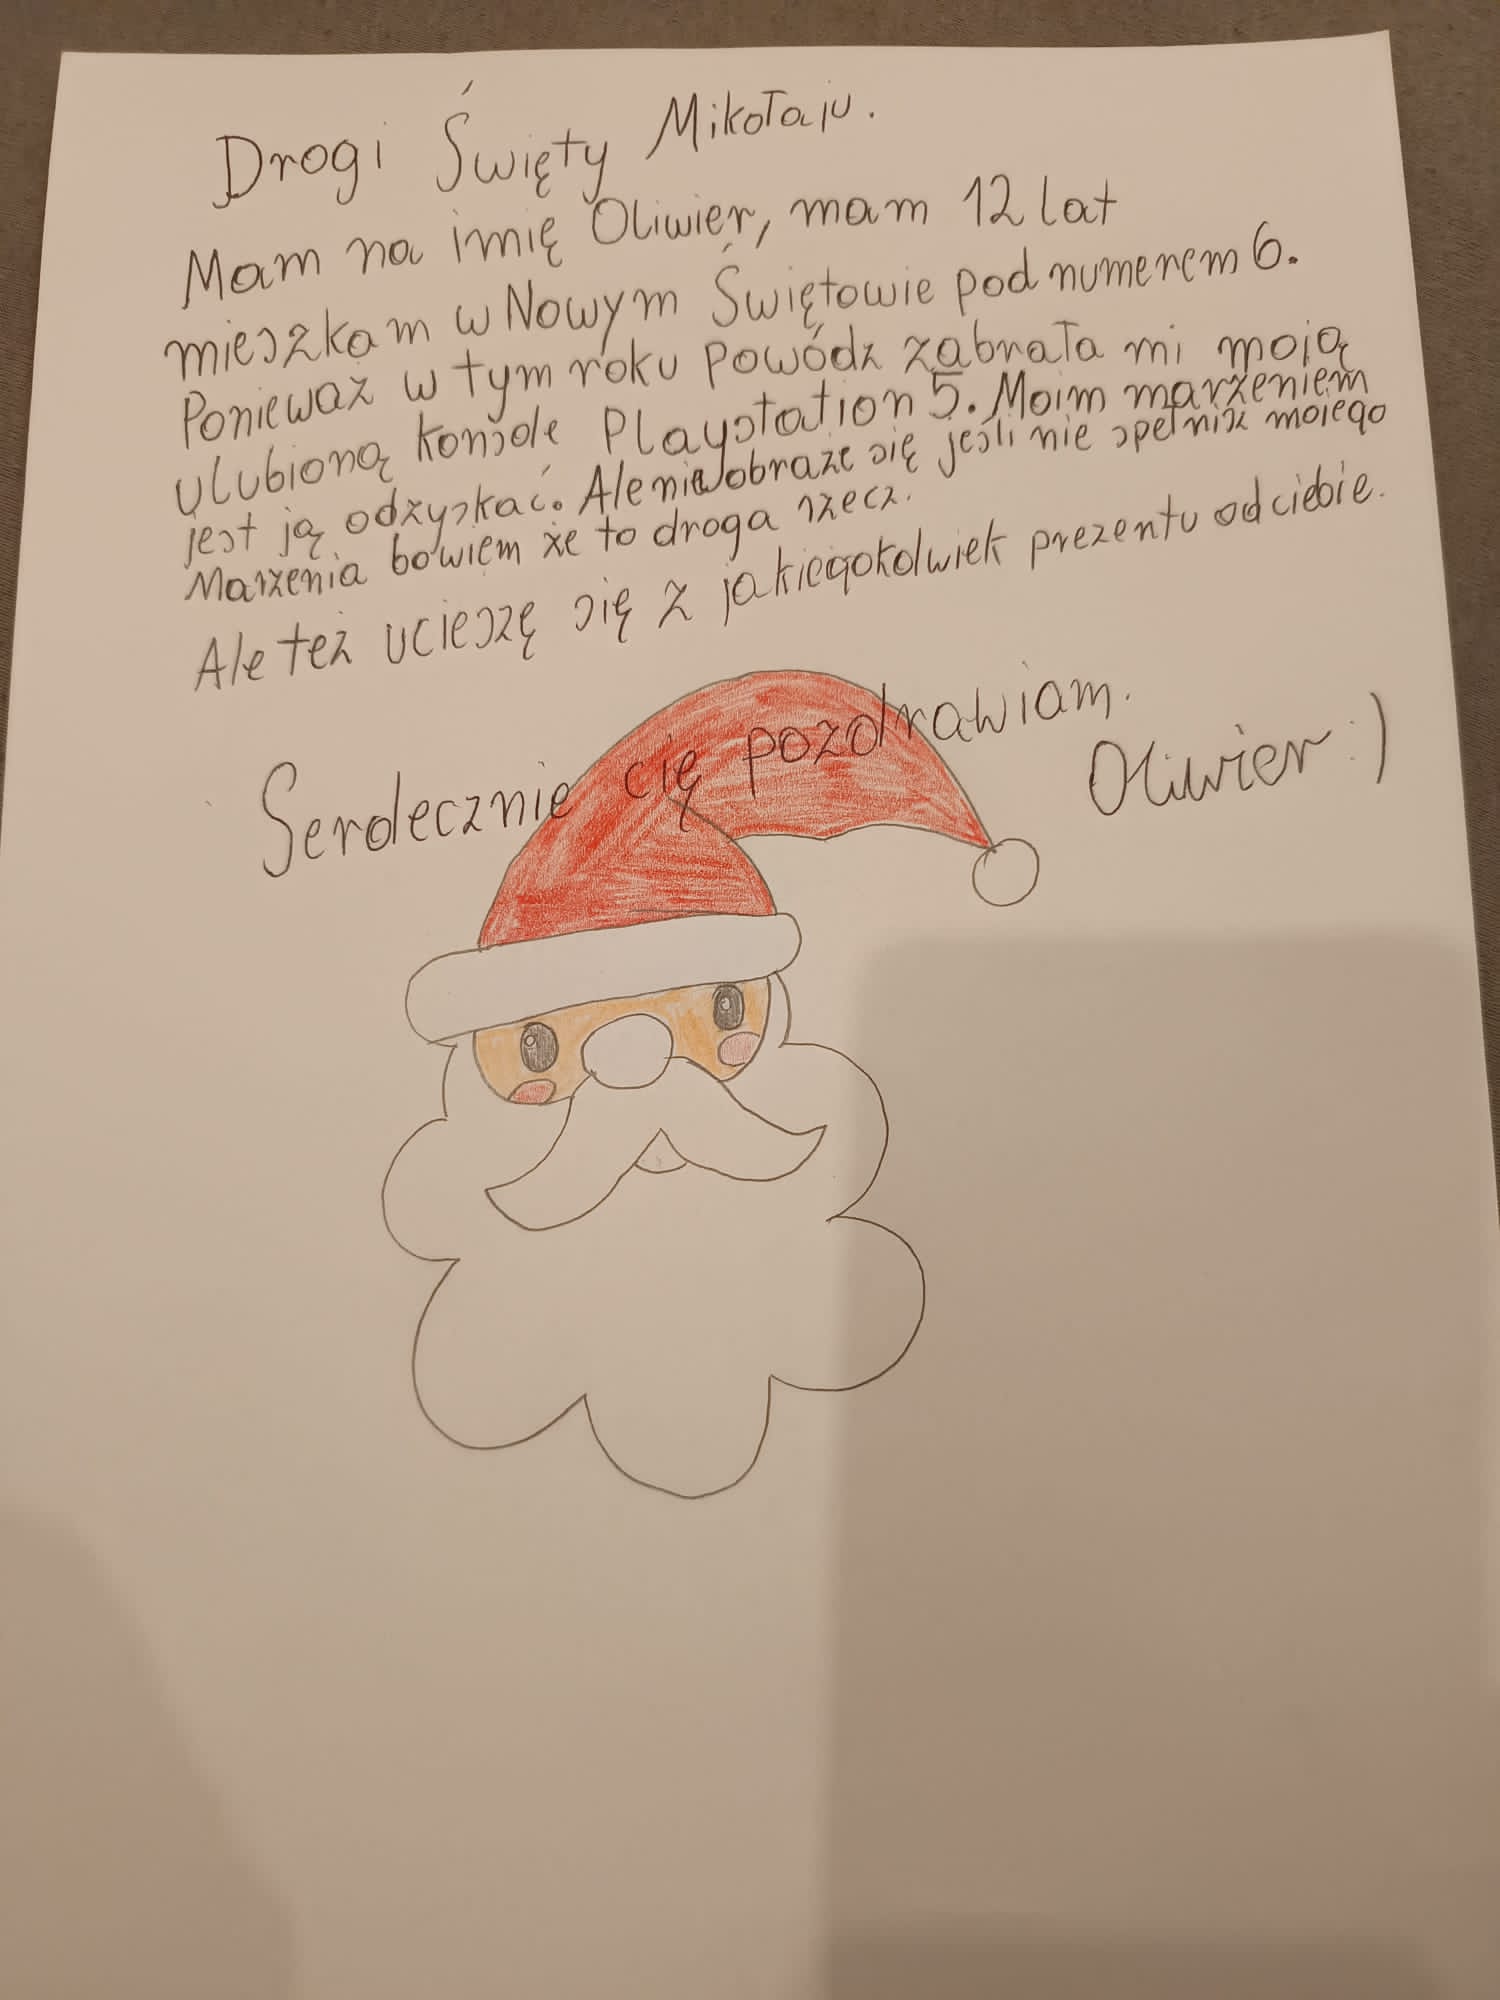 Drogi Święty Mikołaju.
Mam na imię Oliwier, mam 12 lat
mieszkam w Nowym Świętowie pod numerem 6.
Ponieważ w tym roku powódz zabrała mi moją
ulubioną konsole Playstation 5. Moim marzeniem
jest ją odzyskać. Ale nie obraże się jeśli nie spełnisz mojego
Marzenia bowiem że to droga rzecz.
Ale też ucieszę się z jakiegokolwiek prezentu od ciebie.
Serdecznie cię pozdrawiam.
Oliwier :)